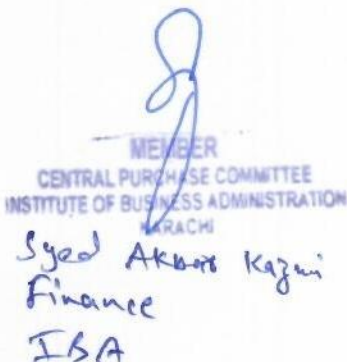 MEMBER
CENTRAL PURCHASE COMMITTEE
INSTITUTE OF BUSINESS ADMINISTRATION
KARACHI
Syed Akbar Kazmi
Finance
IBA